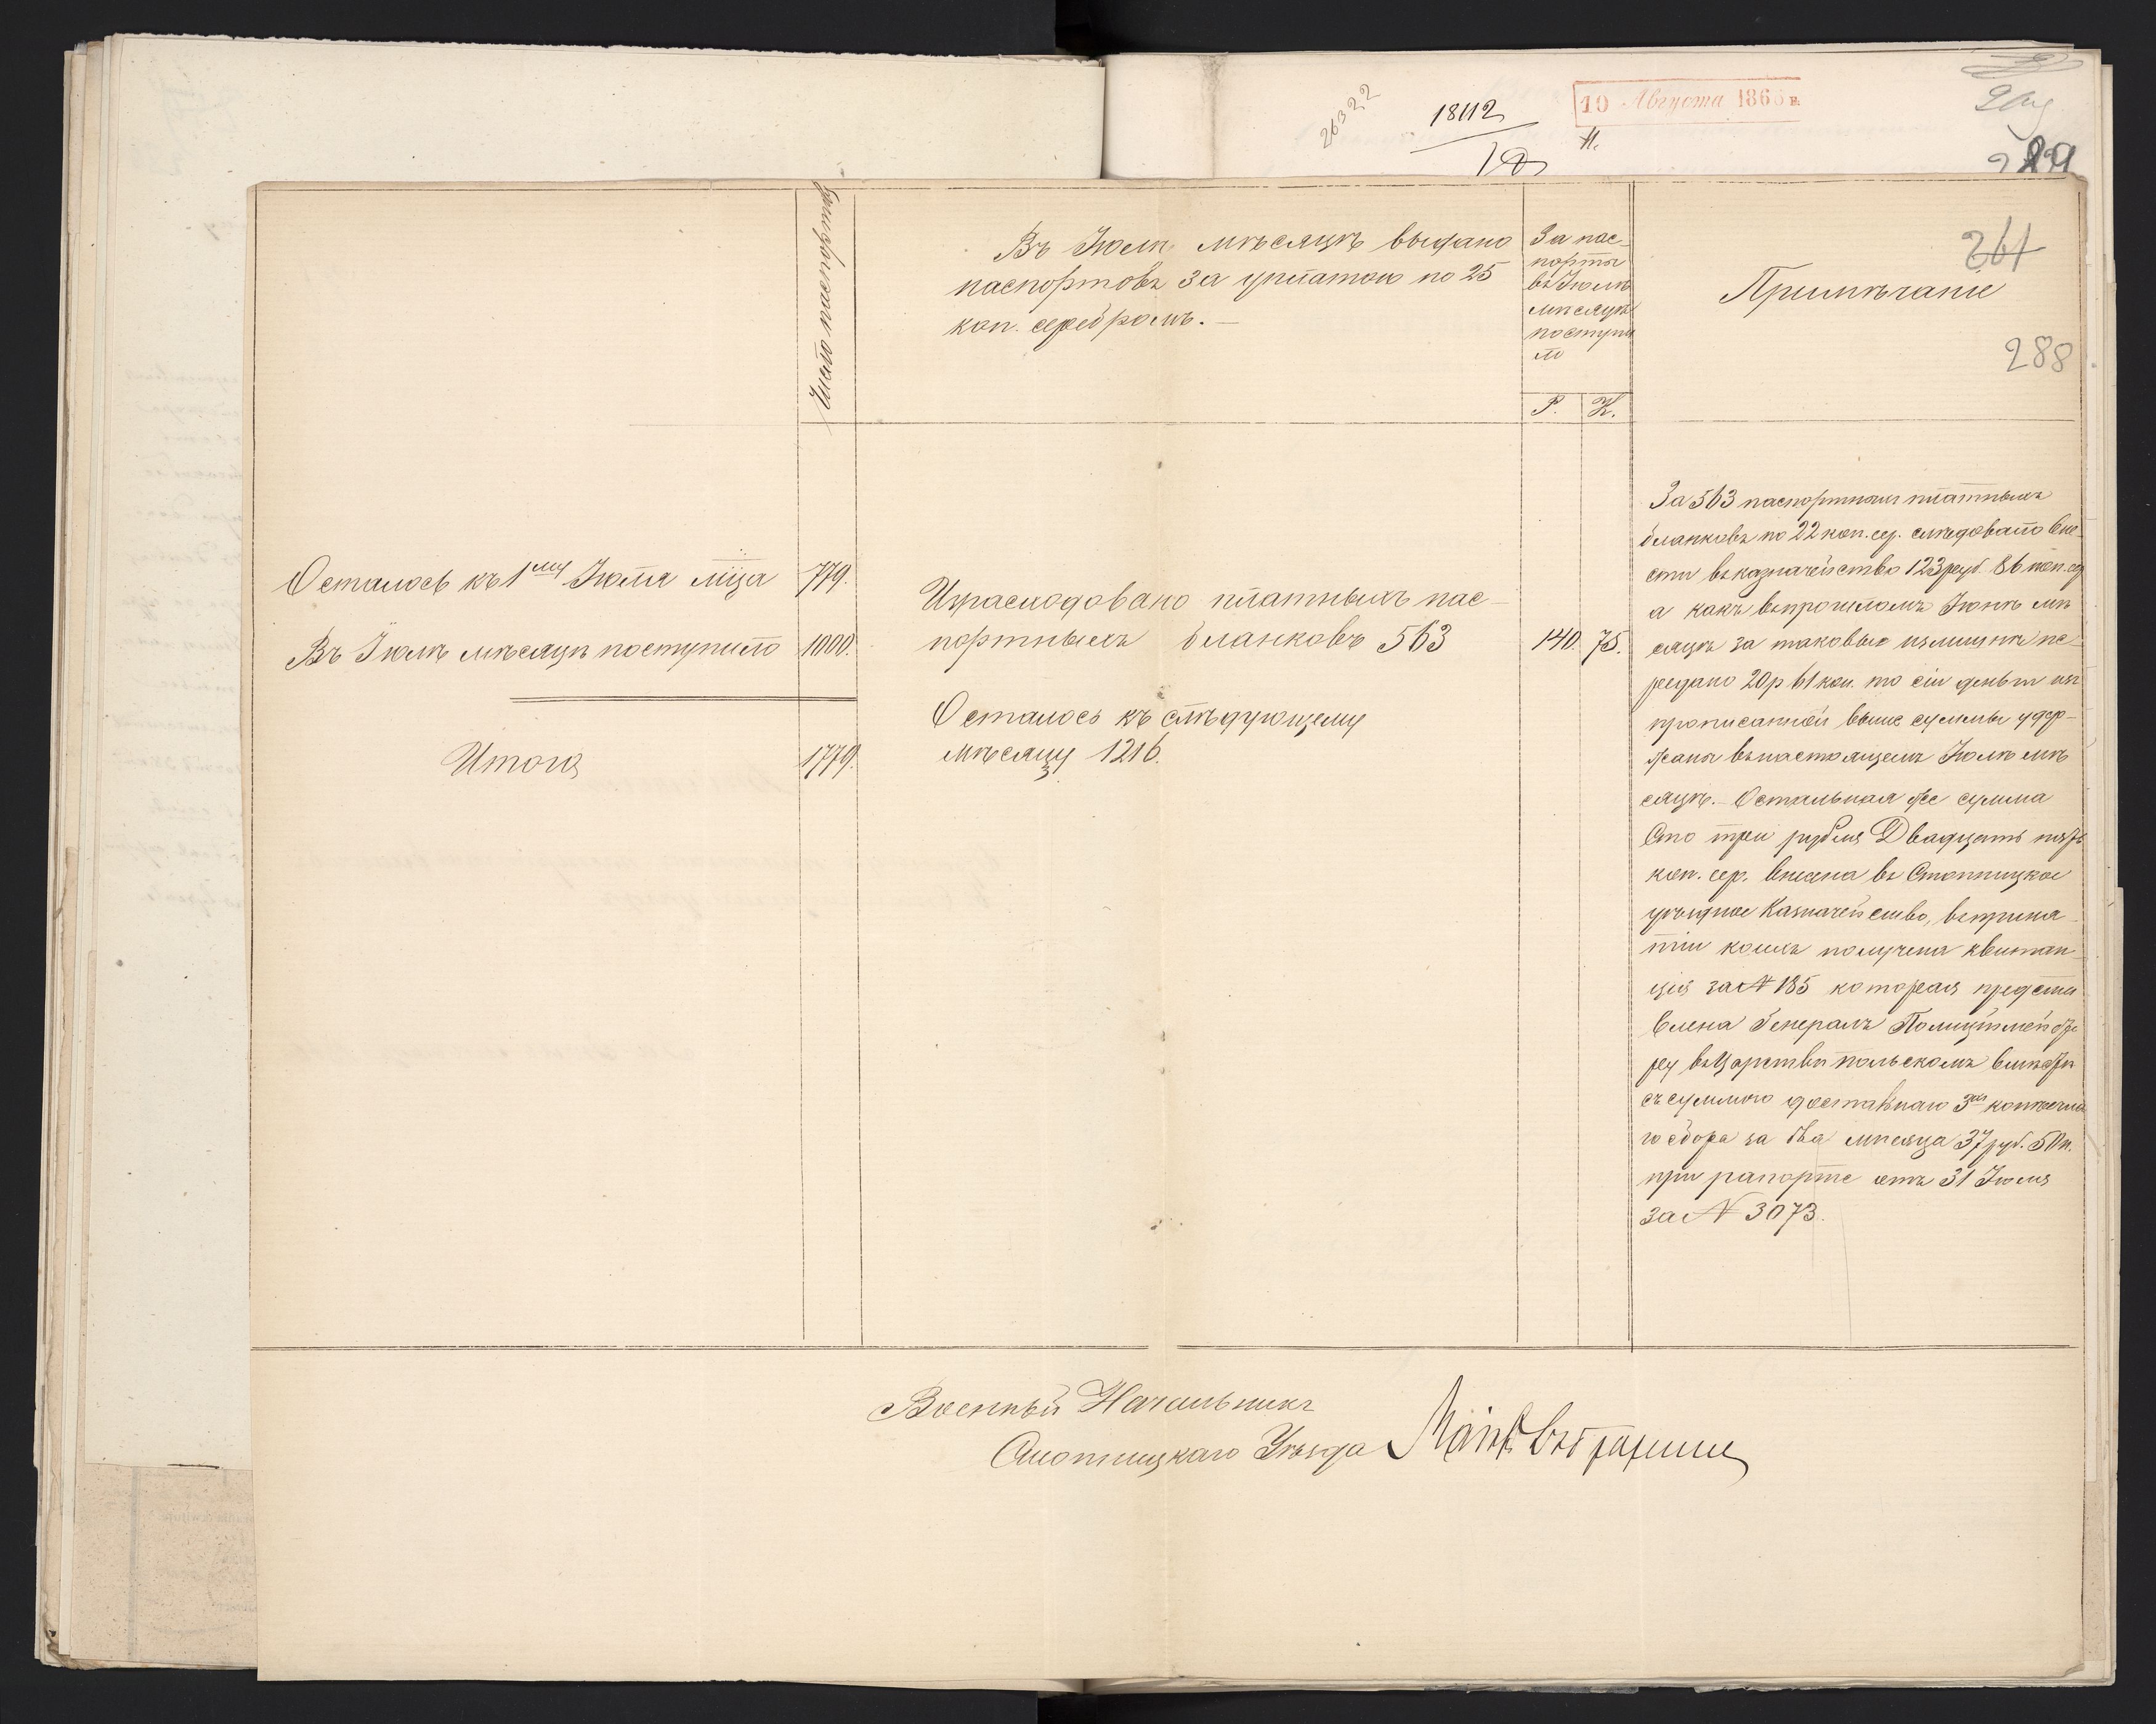 26322
18112
19 Августа 1866 г.
289
261
288
Число паспортовъ
Въ Іюлѣ мѣсяцѣ выдано
паспортовъ за уплатою по 25
коп. серебромъ. —
За пас-
порты
въ Іюлѣ
мѣсяцѣ
поступи
ло
Р. К.
Примѣчаніе
Осталось къ 1му Іюля мѣца 779.
Въ Іюлѣ мѣсяцѣ поступило 1000.
Итого 1779.
Израсходовано платныхъ пас-
портныхъ бланковъ 563 140. 75.
Осталось къ слѣдующему
мѣсяцу 1216.
За 563 паспортныхъ платныхъ
бланковъ по 22 коп. сер. слѣдовало вне-
сти въ казначейство 123 руб. 86 коп. сер
а какъ въ прошломъ Іюнѣ мѣ
сяцѣ за таковые излишнѣ пе-
редано 20 р 61 коп. то сіи деньги изъ
прописанной выше суммы удер-
жаны въ настоящемъ Іюлѣ мѣ
сяцѣ. — Остальная же сумма
Сто три рубля Двадцать пять
коп. сер. внесена въ Стопницкое
уѣздное Казначейство, въ приня-
тіи коихъ получена квитан-
ція за № 185 которая предста
влена Генералъ Полицімейсте
ру въ Царствѣ Польскомъ вмѣстѣ
съ суммою доставнаго 3хъ копѣечна
го сбора за два мѣсяца 37 руб. 50 к.
при рапорте отъ 31 Іюля
за № 3073.
Военный Начальникъ
Стопницкаго Уѣзда Маіоръ